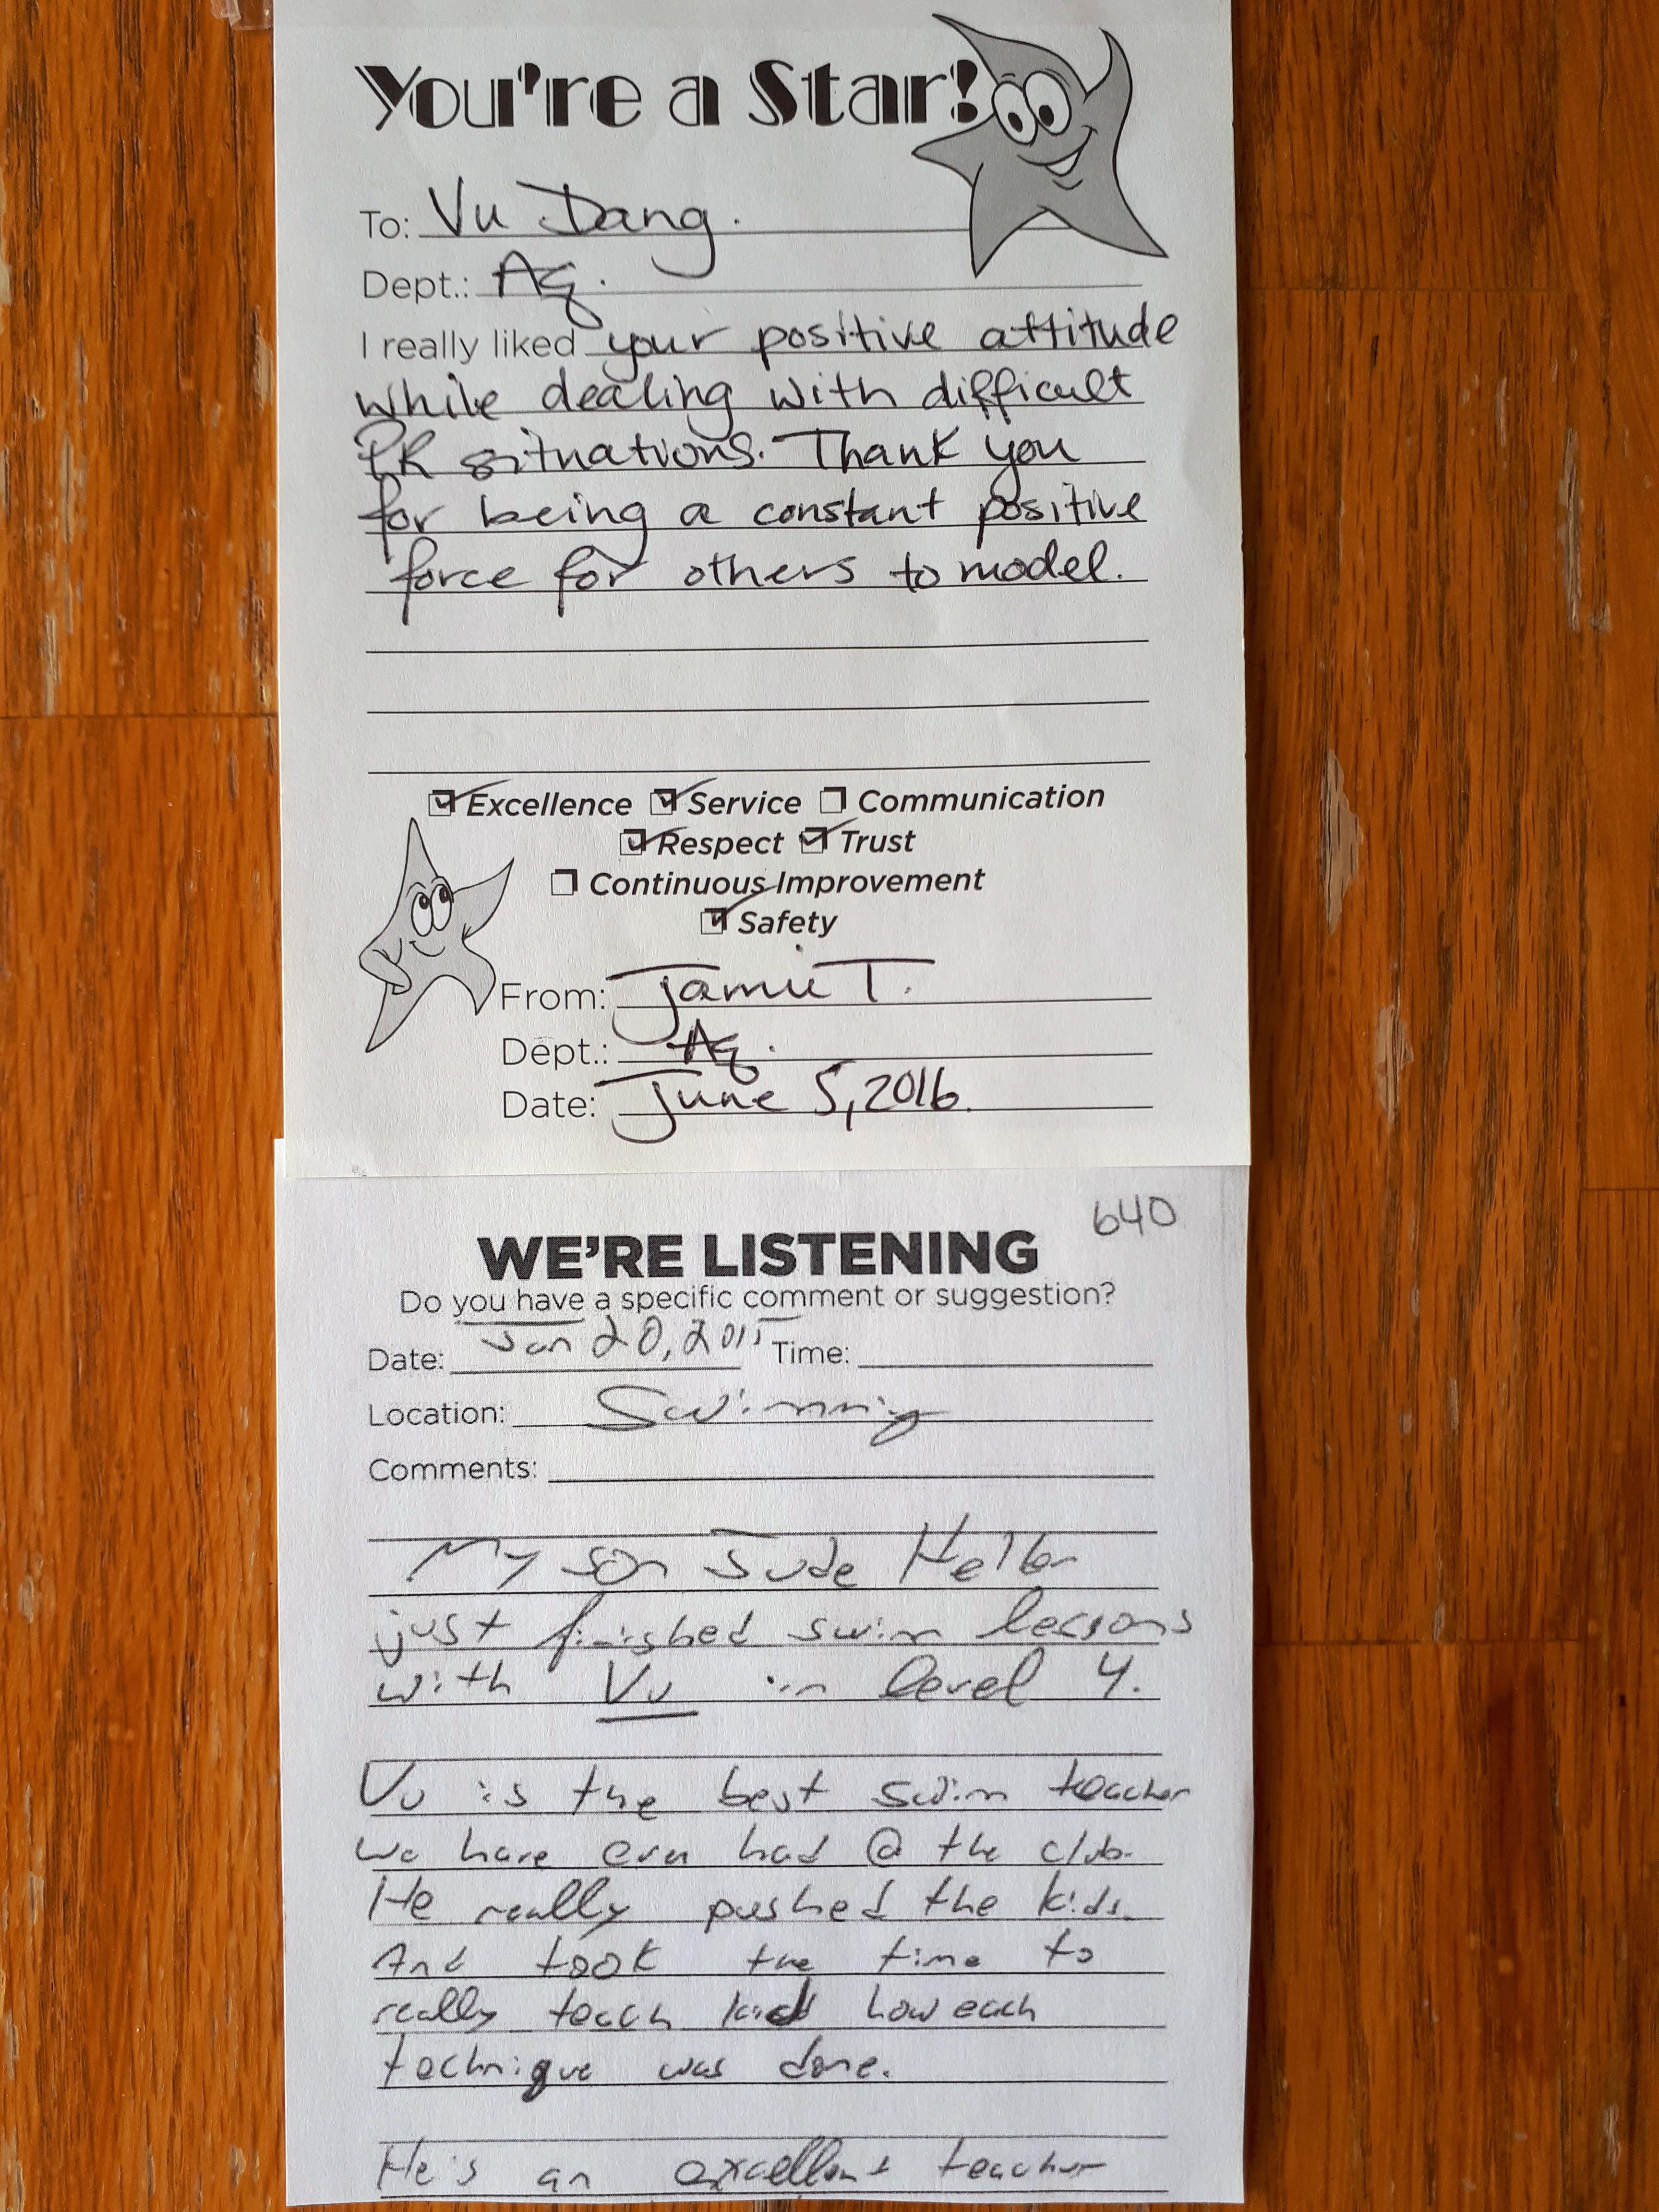 You're a Star!
To: Vu Dang.
Dept.: Aq.
I really liked your positive attitude
while dealing with difficult
PR situations. Thank you
for being a constant positive
force for others to model.
Excellence Service Communication
Respect Trust
Continuous Improvement
Safety
From: Jamie T.
Dept.: Aq.
Date: June 5, 2016.
640
WE'RE LISTENING
Do you have a specific comment or suggestion?
Date: Jan 20, 2015 Time:
Location: Swimming
Comments:
My son Jude
just finished swim lessons
with Vu in level 4.
Vu is the best swim teacher
we have ever had @ the club.
He really pushed the kids.
And took the time to
really teach kid how each
technique was done.
He's an excellent teacher